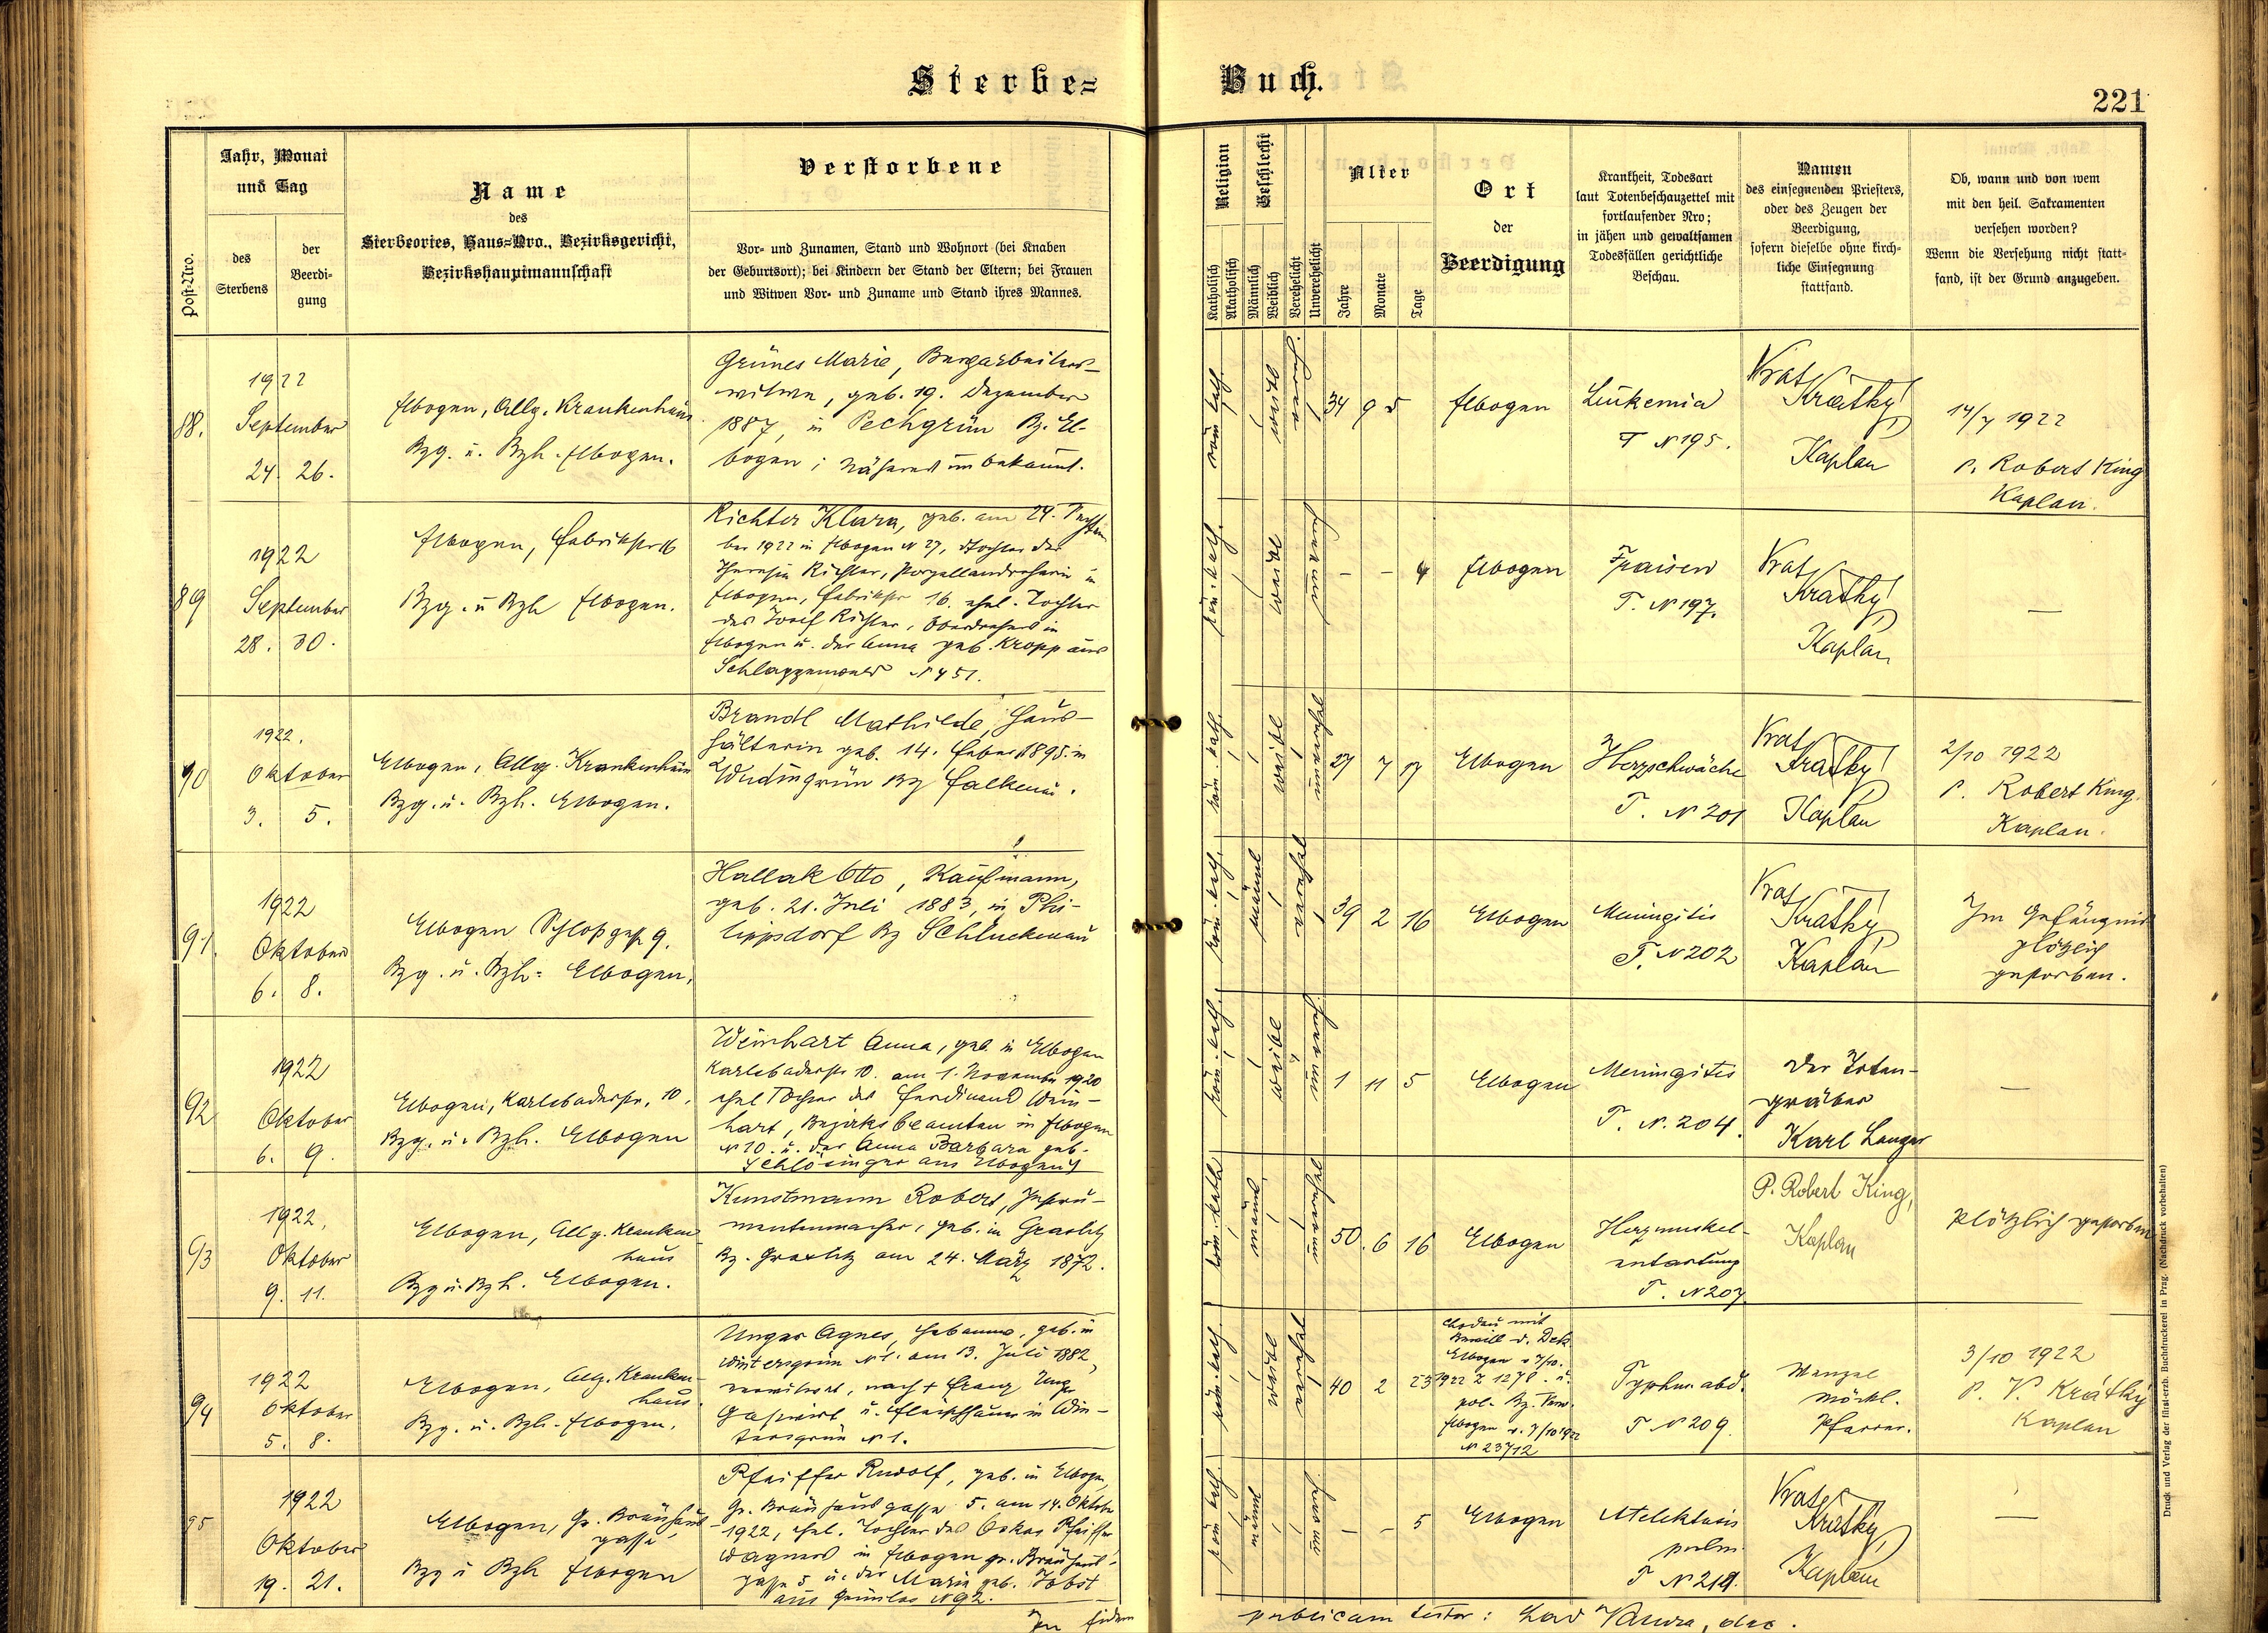 Sterbe-
Buch.
221
Post-Nro.
Jahr, Monat
und Tag
des
Sterbens
der
Beerdi-
gung
Name
des
Sterbeortes, Haus-Nro., Bezirksgericht,
Bezirkshauptmannschaft
Verstorbene
Vor- und Zunamen, Stand und Wohnort (bei Knaben
der Geburtsort); bei Kindern der Stand der Eltern; bei Frauen
und Witwen Vor- und Zuname und Stand ihres Mannes.
Religion
Katholisch
Akatholisch
Geschlecht
Männlich
Weiblich
Verehelicht
Unverehelicht
Alter
Jahre
Monate
Tage
Ort
der
Beerdigung
Krankheit, Todesart
laut Totenbeschauzettel mit
fortlaufender Nro;
in jähen und gewaltsamen
Todesfällen gerichtliche
Beschau.
Namen
des einsegnenden Priesters,
oder des Zeugen der
Beerdigung,
sofern dieselbe ohne kirch-
liche Einsegnung
stattfand.
Ob, wann und von wem
mit den heil. Sakramenten
versehen worden?
Wenn die Versehung nicht statt-
fand, ist der Grund anzugeben.
88.
1922
September
24. 26.
Elbogen, Allg. Krankenhaus
Bzg. u. Bzh. Elbogen.
Grünes Marie, Bergarbeiters-
witwe, geb. 19. Dezember
1887, in Pechgrün Bz. El-
bogen; Näheres unbekannt.
röm. kath.
weibl
34 9 5
Elbogen
Leukemia
T N 195.
Vrat. Krátký
Kaplan
14/7 1922
P. Robert King
Kaplan.
89
1922
September
28. 30.
Elbogen, Fabrikstr 16
Bzg. u Bzh Elbogen.
Richter Klara, geb. am 24. Septem
ber 1922 in Elbogen N 27, Tochter der
Theresia Richter, Porzellandreherin in
Elbogen, Fabrikstr 16. ehel. Tochter
des Josef Richter, Oberdrehers in
Elbogen u. der Anna geb. Kropp aus
Schlaggenwald N 451.
röm. kath.
weibl
– – 4
Elbogen
Fraisen
T. N 197.
Vrat. Krátký
Kaplan
—
90
1922.
Oktober
3. 5.
Elbogen, Allg. Krankenhaus
Bzg. u. Bzh. Elbogen.
Brandl Mathilde, Haus-
hälterin geb. 14. Feber 1895. in
Wudingrün Bz Falkenau.
röm. kath.
weibl
27 7 17
Elbogen
Herzschwäche
T. N 201
Vrat. Krátký
Kaplan
2/10 1922
P. Robert King.
Kaplan.
91.
1922
Oktober
6. 8.
Elbogen Schloßgasse 9.
Bzg. u. Bzh. Elbogen.
Hallak Otto, Kaufmann,
geb. 21. Juli 1883, in Phi-
lippsdorf Bz Schluckenau
röm. kath.
männl
verehel
39 2 16
Elbogen
Meningitis
T. N 202
Vrat. Krátký
Kaplan
Im Gefängnis
plötzlich
gestorben.
92
1922
Oktober
6. 9.
Elbogen, Karlsbaderstr. 10.
Bzg. u. Bzh. Elbogen
Weinhart Anna, geb. in Elbogen
Karlsbaderstr 10. am 1. November 1920
ehel Tochter des Ferdinand Wein-
hart, Bezirksbeamten in Elbogen
N 10. u. der Anna Barbara geb.
Schlösinger aus Elbogen
röm. kath.
weibl
1 11 5
Elbogen
Meningitis
T. N. 204.
Der Toten-
gräber
Karl Langer
—
93
1922,
Oktober
9. 11.
Elbogen, Allg. Kranken
haus
Bzg u. Bzh. Elbogen.
Kunstmann Robert, Instru-
mentenmacher, geb. in Graslitz
Bz. Graslitz am 24. März 1872.
röm. kath.
männl
50. 6 16
Elbogen
Herzmuskel-
entartung
T. N 207
P. Robert King,
Kaplan
Plötzlich gestorben
94
1922
Oktober
5. 8.
Elbogen, Allg. Kranken-
haus.
Bzg. u. Bzh. Elbogen.
Unger Agnes, Hebamme, geb. in
Wintersgrün N 1. am 13. Juli 1882,
verwitwet, nach + Franz Unger
Gastwirt u. Fleischhauer in Win-
tersgrün N 1.
röm. kath.
weibl
40 2 23
Chodau mit
Bewill. d. Dek.
Elbogen v 7/10.
1922 Z 1278. u.
pol. Bz. Verw.
Elbogen v. 7/10 1922
N 23712
Typhus abd.
T N 209
Wenzel
Möckl.
Pfarrer.
3/10 1922
P. V. Krátký
Kaplan
95
1922
Oktober
19. 21.
Elbogen, Gr. Bräuhaus
gasse
Bzg u Bzh Elbogen
Pfeiffer Rudolf, geb. in Elbogen,
Gr. Bräuhausgasse 5. am 14. Oktober
1922, ehel. Tochter des Oskar Pfeiffer
Wagners in Elbogen gr. Bräuhaus-
gasse 5 u. der Marie geb. Jobst
aus Grünlas N 92.
röm kath.
männl
– – 5
Elbogen
Atelektasis
pulm.
T N 219.
Vrat. Krátký
Kaplan
—
In fidem
publicam testor:
Druck und Verlag der fürst-erzb. Buchdruckerei in Prag. (Nachdruck vorbehalten)